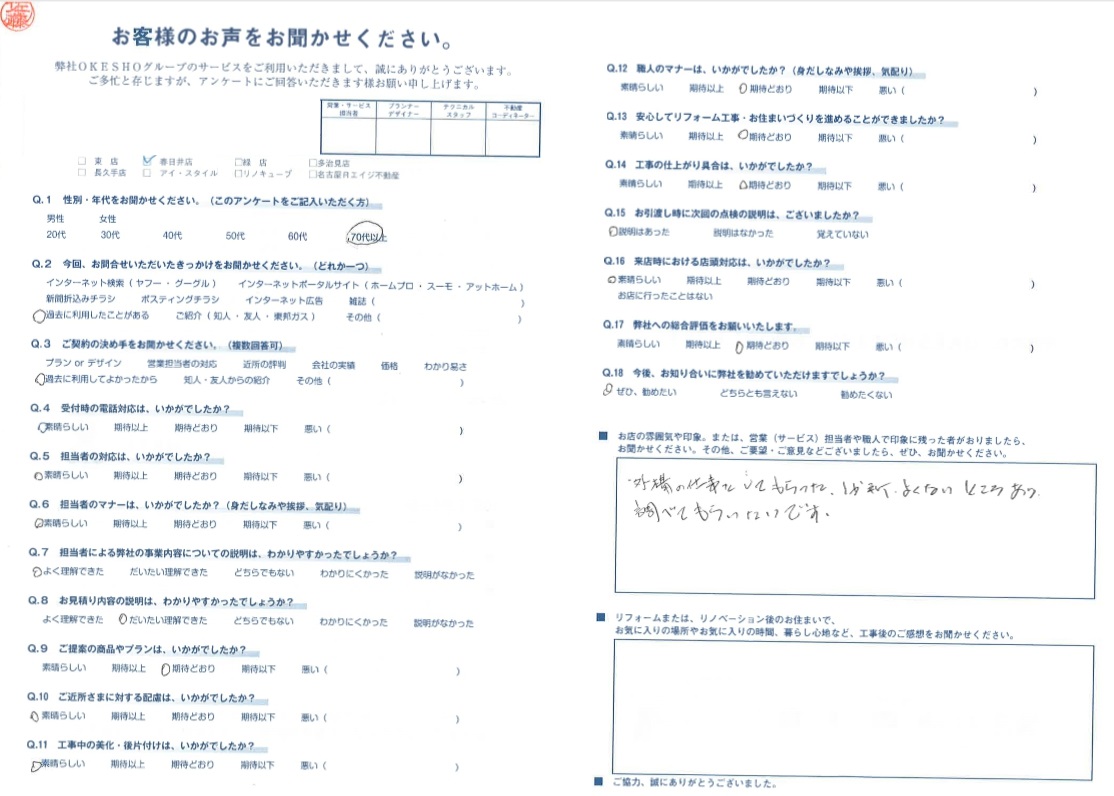 お客様のお声をお聞かせください。
弊社OKESHOグループのサービスをご利用いただきまして、誠にありがとうございます。
ご多忙と存じますが、アンケートにご回答いただきます様お願い申し上げます。
営業・サービス担当者 プランナーデザイナー テクニカルスタッフ 不動産コーディネーター
□ 東 店 ☑ 春日井店 □緑 店 □多治見店
□ 長久手店 □ アイ・スタイル □リノキューブ □名古屋Rエイジ不動産
Q.1 性別・年代をお聞かせください。(このアンケートをご記入いただく方)
男性 女性
20代 30代 40代 50代 60代 70代以上
Q.2 今回、お問合せいただいたきっかけをお聞かせください。(どれか一つ)
インターネット検索(ヤフー・グーグル) インターネットポータルサイト(ホームプロ・スーモ・アットホーム)
新聞折込みチラシ ポスティングチラシ インターネット広告 雑誌( )
過去に利用したことがある ご紹介(知人・友人・東邦ガス) その他( )
Q.3 ご契約の決め手をお聞かせください。(複数回答可)
プラン or デザイン 営業担当者の対応 近所の評判 会社の実績 価格 わかり易さ
過去に利用してよかったから 知人・友人からの紹介 その他( )
Q.4 受付時の電話対応は、いかがでしたか?
素晴らしい 期待以上 期待どおり 期待以下 悪い( )
Q.5 担当者の対応は、いかがでしたか?
素晴らしい 期待以上 期待どおり 期待以下 悪い( )
Q.6 担当者のマナーは、いかがでしたか?(身だしなみや挨拶、気配り)
素晴らしい 期待以上 期待どおり 期待以下 悪い( )
Q.7 担当者による弊社の事業内容についての説明は、わかりやすかったでしょうか?
よく理解できた だいたい理解できた どちらでもない わかりにくかった 説明がなかった
Q.8 お見積り内容の説明は、わかりやすかったでしょうか?
よく理解できた だいたい理解できた どちらでもない わかりにくかった 説明がなかった
Q.9 ご提案の商品やプランは、いかがでしたか?
素晴らしい 期待以上 期待どおり 期待以下 悪い( )
Q.10 ご近所さまに対する配慮は、いかがでしたか?
素晴らしい 期待以上 期待どおり 期待以下 悪い( )
Q.11 工事中の美化・後片付けは、いかがでしたか?
素晴らしい 期待以上 期待どおり 期待以下 悪い( )
Q.12 職人のマナーは、いかがでしたか?(身だしなみや挨拶、気配り)
素晴らしい 期待以上 期待どおり 期待以下 悪い( )
Q.13 安心してリフォーム工事・お住まいづくりを進めることができましたか?
素晴らしい 期待以上 期待どおり 期待以下 悪い( )
Q.14 工事の仕上がり具合は、いかがでしたか?
素晴らしい 期待以上 期待どおり 期待以下 悪い( )
Q.15 お引渡し時に次回の点検の説明は、ございましたか?
説明はあった 説明はなかった 覚えていない
Q.16 来店時における店頭対応は、いかがでしたか?
素晴らしい 期待以上 期待どおり 期待以下 悪い( )
お店に行ったことはない
Q.17 弊社への総合評価をお願いいたします。
素晴らしい 期待以上 期待どおり 期待以下 悪い( )
Q.18 今後、お知り合いに弊社を勧めていただけますでしょうか?
ぜひ、勧めたい どちらとも言えない 勧めたくない
■ お店の雰囲気や印象。または、営業(サービス)担当者や職人で印象に残った者がおりましたら、
お聞かせください。その他、ご要望・ご意見などございましたら、ぜひ、お聞かせください。
外構の仕事をしてもらった、1か所、よくないところあり
調べてもらいたいです。
■ リフォームまたは、リノベーション後のお住まいで、
お気に入りの場所やお気に入りの時間、暮らし心地など、工事後のご感想をお聞かせください。
■ ご協力、誠にありがとうございました。